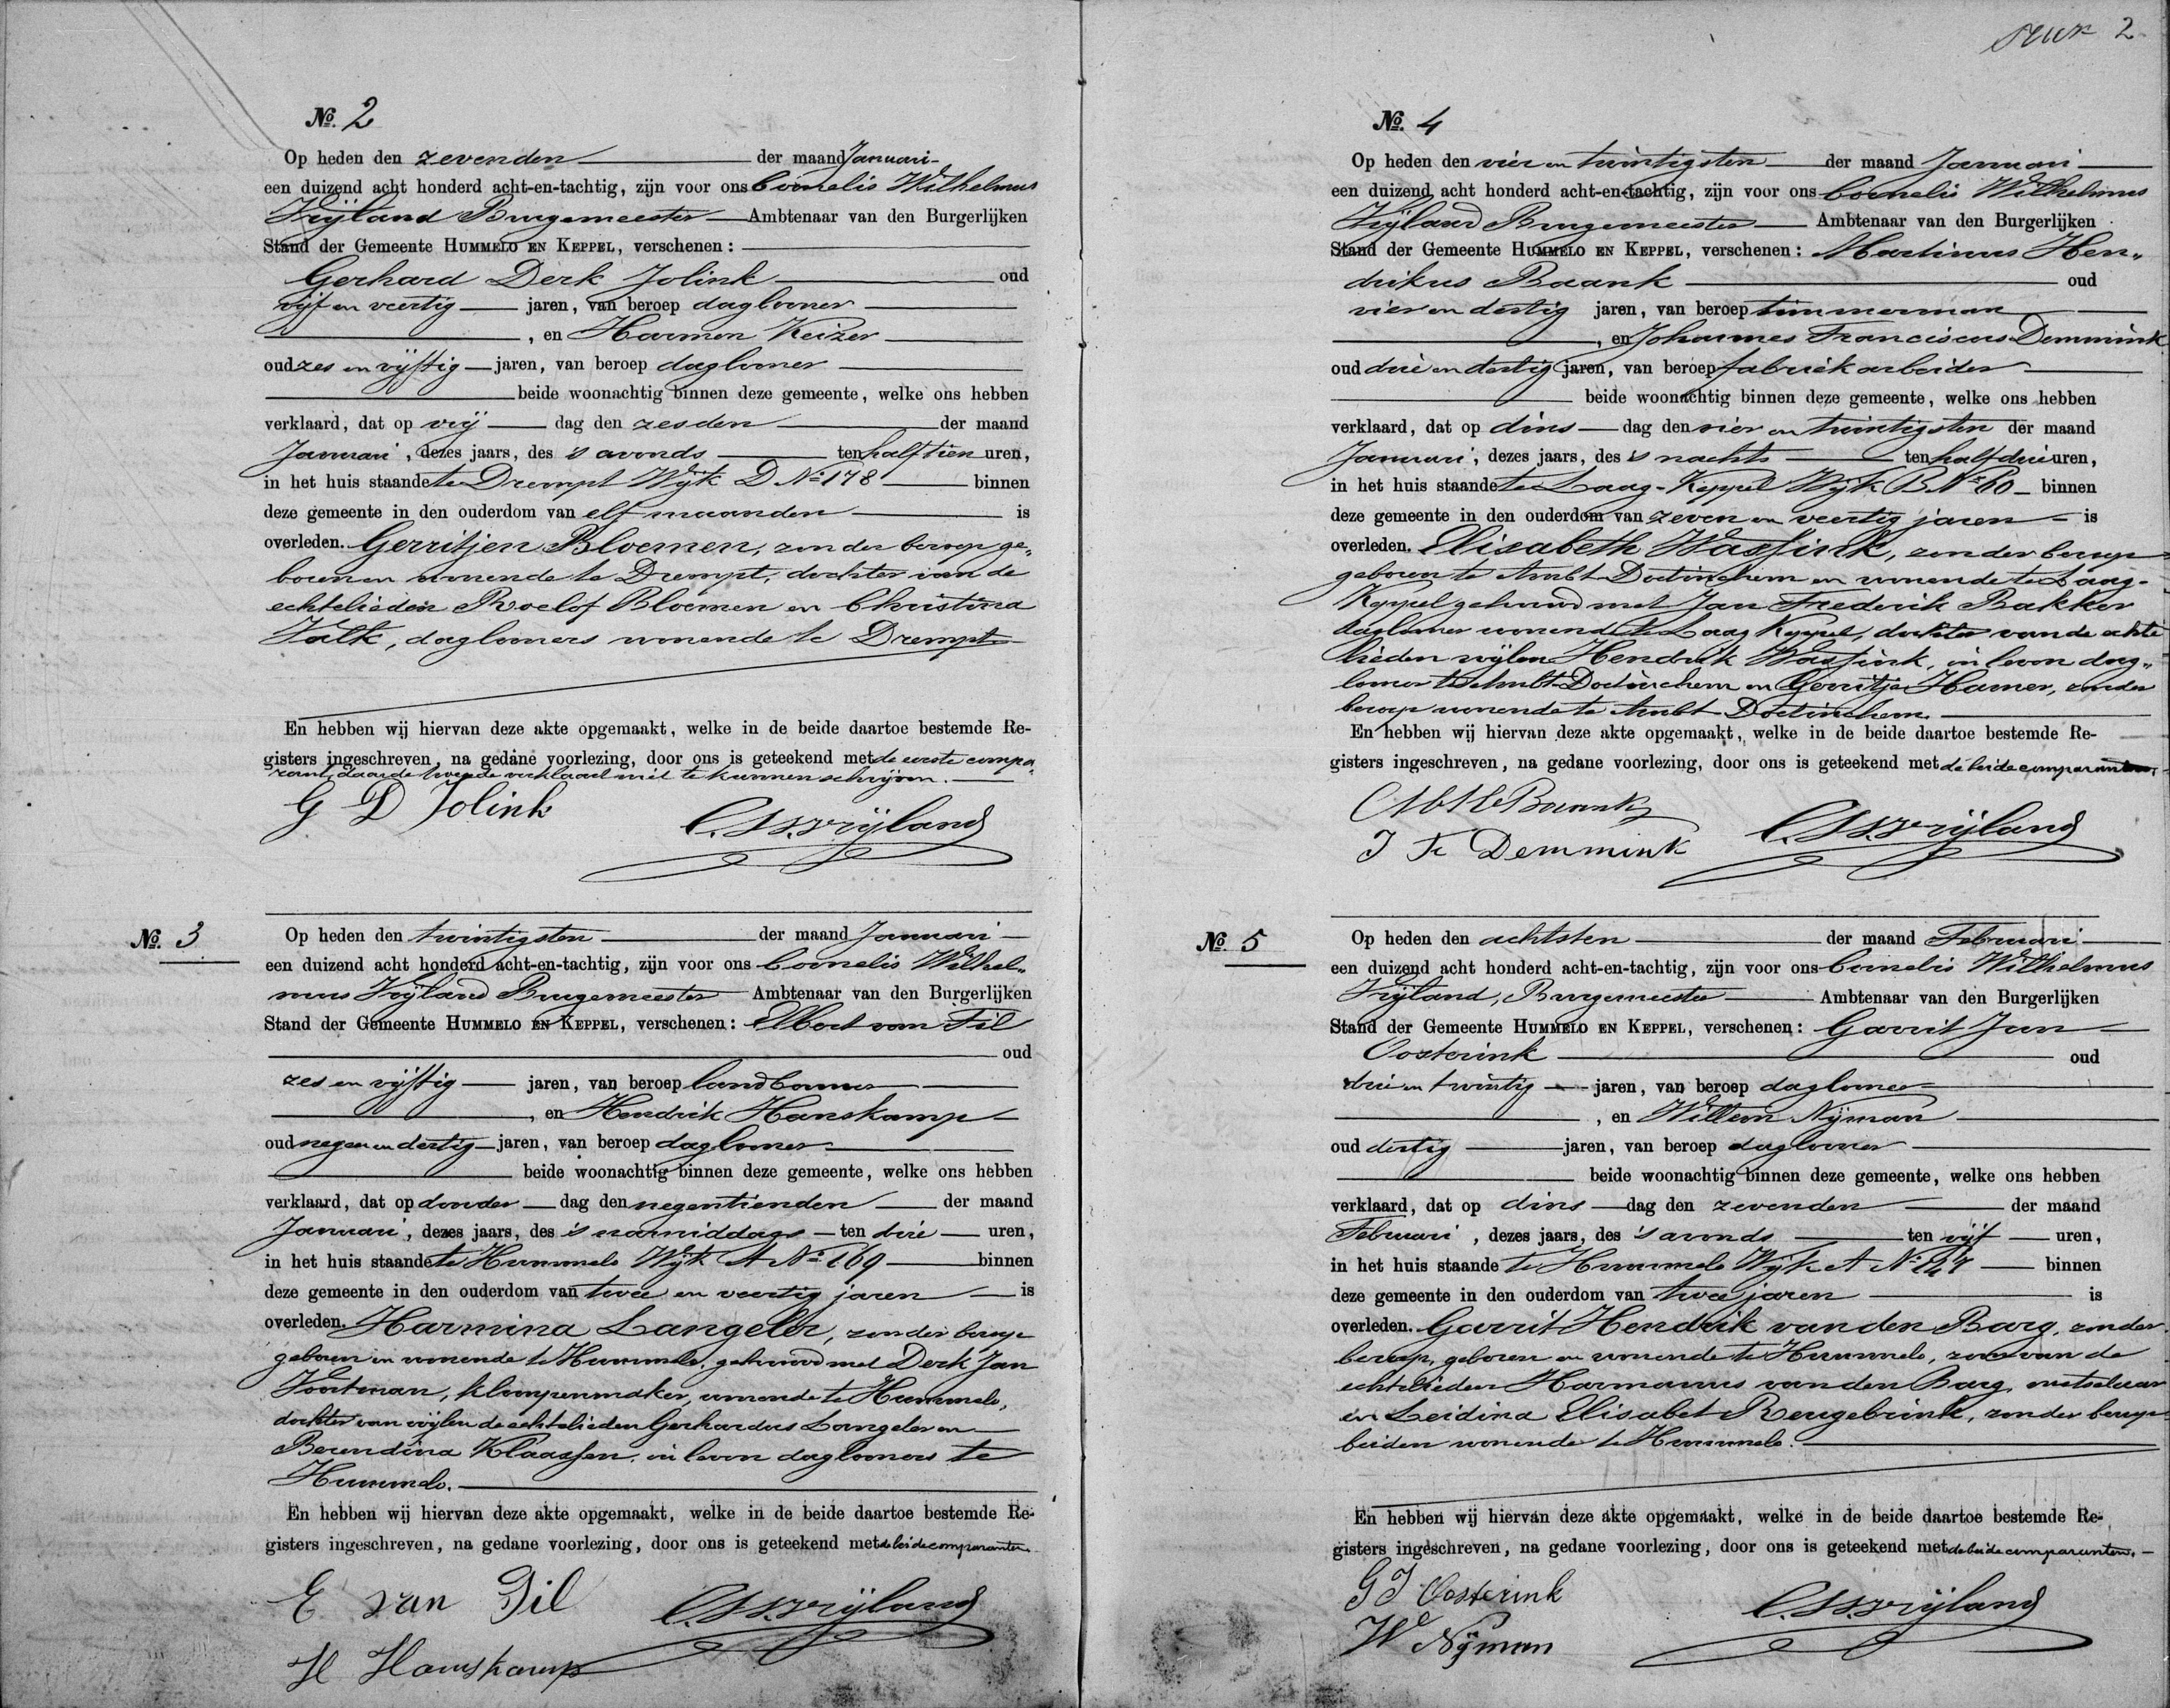 2
No. 2
Op heden den zevenden der maand Januari
een duizend acht honderd acht-en-tachtig, zijn voor ons Cornelis Wilhelmus
Vrijland Burgemeester Ambtenaar van den Burgerlijken
Stand der Gemeente HUMMELO EN KEPPEL, verschenen:
Gerhard Derk Jolink oud
vijf en veertig jaren, van beroep daglooner
, en Harmen Keizer
oud zes en vijftig jaren, van beroep daglooner
beide woonachtig binnen deze gemeente, welke ons hebben
verklaard, dat op vrij dag den zesden der maand
Januari, dezes jaars, des 's avonds ten half tien uren,
in het huis staande te Drempt Wijk D No 178 binnen
deze gemeente in den ouderdom van elf maanden is
overleden. Gerritjen Bloemen, zonder beroep ge„
boren en wonende te Drempt, dochter van de
echtelieden Roelof Bloemen en Christina
Valk, daglooners wonende te Drempt
En hebben wij hiervan deze akte opgemaakt, welke in de beide daartoe bestemde Re-
gisters ingeschreven, na gedane voorlezing, door ons is geteekend met de eerste compa„
rant, daar de tweede verklaard niet te kunnen schrijven.
G D Jolink
C.W. Vrijland
No. 3
Op heden den twintigsten der maand Januari
een duizend acht honderd acht-en-tachtig, zijn voor ons Cornelis Wilhel„
mus Vrijland Burgemeester Ambtenaar van den Burgerlijken
Stand der Gemeente HUMMELO EN KEPPEL, verschenen: Elbert van Til
oud
zes en vijftig jaren, van beroep landbouwer
, en Hendrik Hanskamp
oud negen en dertig jaren, van beroep daglooner
beide woonachtig binnen deze gemeente, welke ons hebben
verklaard, dat op donder dag den negentienden der maand
Januari, dezes jaars, des 's namiddags ten drie uren,
in het huis staande te Hummelo Wijk A No 169 binnen
deze gemeente in den ouderdom van twee en veertig jaren is
overleden. Harmina Langeler, zonder beroep
geboren en wonende te Hummelo, gehuwd met Derk Jan
Voortman, klompenmaker, wonende te Hummelo,
dochter van wijlen de echtelieden Gerhardus Langeler en
Berendina Klaassen, in leven daglooners te
Hummelo.
En hebben wij hiervan deze akte opgemaakt, welke in de beide daartoe bestemde Re-
gisters ingeschreven, na gedane voorlezing, door ons is geteekend met de beide comparanten.
E van Til
C.W. Vrijland
H Hanskamp
No. 4
Op heden den vier en twintigsten der maand Januari
een duizend acht honderd acht-en-tachtig, zijn voor ons Cornelis Wilhelmus
Vrijland Burgemeester Ambtenaar van den Burgerlijken
Stand der Gemeente HUMMELO EN KEPPEL, verschenen: Martinus Hen„
drikus Baank oud
vier en dertig jaren, van beroep timmerman
, en Johannes Franciscus Demmink
oud drie en dertig jaren, van beroep fabriekarbeider
beide woonachtig binnen deze gemeente, welke ons hebben
verklaard, dat op dins dag den vier en twintigsten der maand
Januari, dezes jaars, des 's nachts ten half drie uren,
in het huis staande te Laag-Keppel Wijk B No 60 binnen
deze gemeente in den ouderdom van zeven en veertig jaren is
overleden. Elisabeth Wassink, zonder beroep
geboren te Ambt Doetinchem en wonende te Laag-
Keppel gehuwd met Jan Frederik Bakker
daglooner wonende te Laag Keppel, dochter van de echte
lieden wijlen Hendrik Wassink, in leven dag„
looner te Ambt Doetinchem en Gerritje Hamer, zonder
beroep wonende te Ambt Doetinchem.
En hebben wij hiervan deze akte opgemaakt, welke in de beide daartoe bestemde Re-
gisters ingeschreven, na gedane voorlezing, door ons is geteekend met de beide comparanten.
M H Baank
J F Demmink
C.W. Vrijland
No. 5
Op heden den achtsten der maand Februari
een duizend acht honderd acht-en-tachtig, zijn voor ons Cornelis Wilhelmus
Vrijland, Burgemeester Ambtenaar van den Burgerlijken
Stand der Gemeente HUMMELO EN KEPPEL, verschenen: Garrit Jan
Oosterink oud
drie en twintig jaren, van beroep daglooner
, en Willem Nijman
oud dertig jaren, van beroep daglooner
beide woonachtig binnen deze gemeente, welke ons hebben
verklaard, dat op dins dag den zevenden der maand
Februari, dezes jaars, des 's avonds ten vijf uren,
in het huis staande te Hummelo Wijk A No binnen
deze gemeente in den ouderdom van twee jaren is
overleden. Garrit Hendrik van den Barg, zonder
beroep, geboren en wonende te Hummelo, zoon van de
echtelieden Harmanus van den Barg, metselaar
en Leidina Elisabet Rengebrink, zonder beroep
beiden wonende te Hummelo.
En hebben wij hiervan deze akte opgemaakt, welke in de beide daartoe bestemde Re-
gisters ingeschreven, na gedane voorlezing, door ons is geteekend met de beide comparanten.
G J Oosterink
C.W. Vrijland
W Nijman